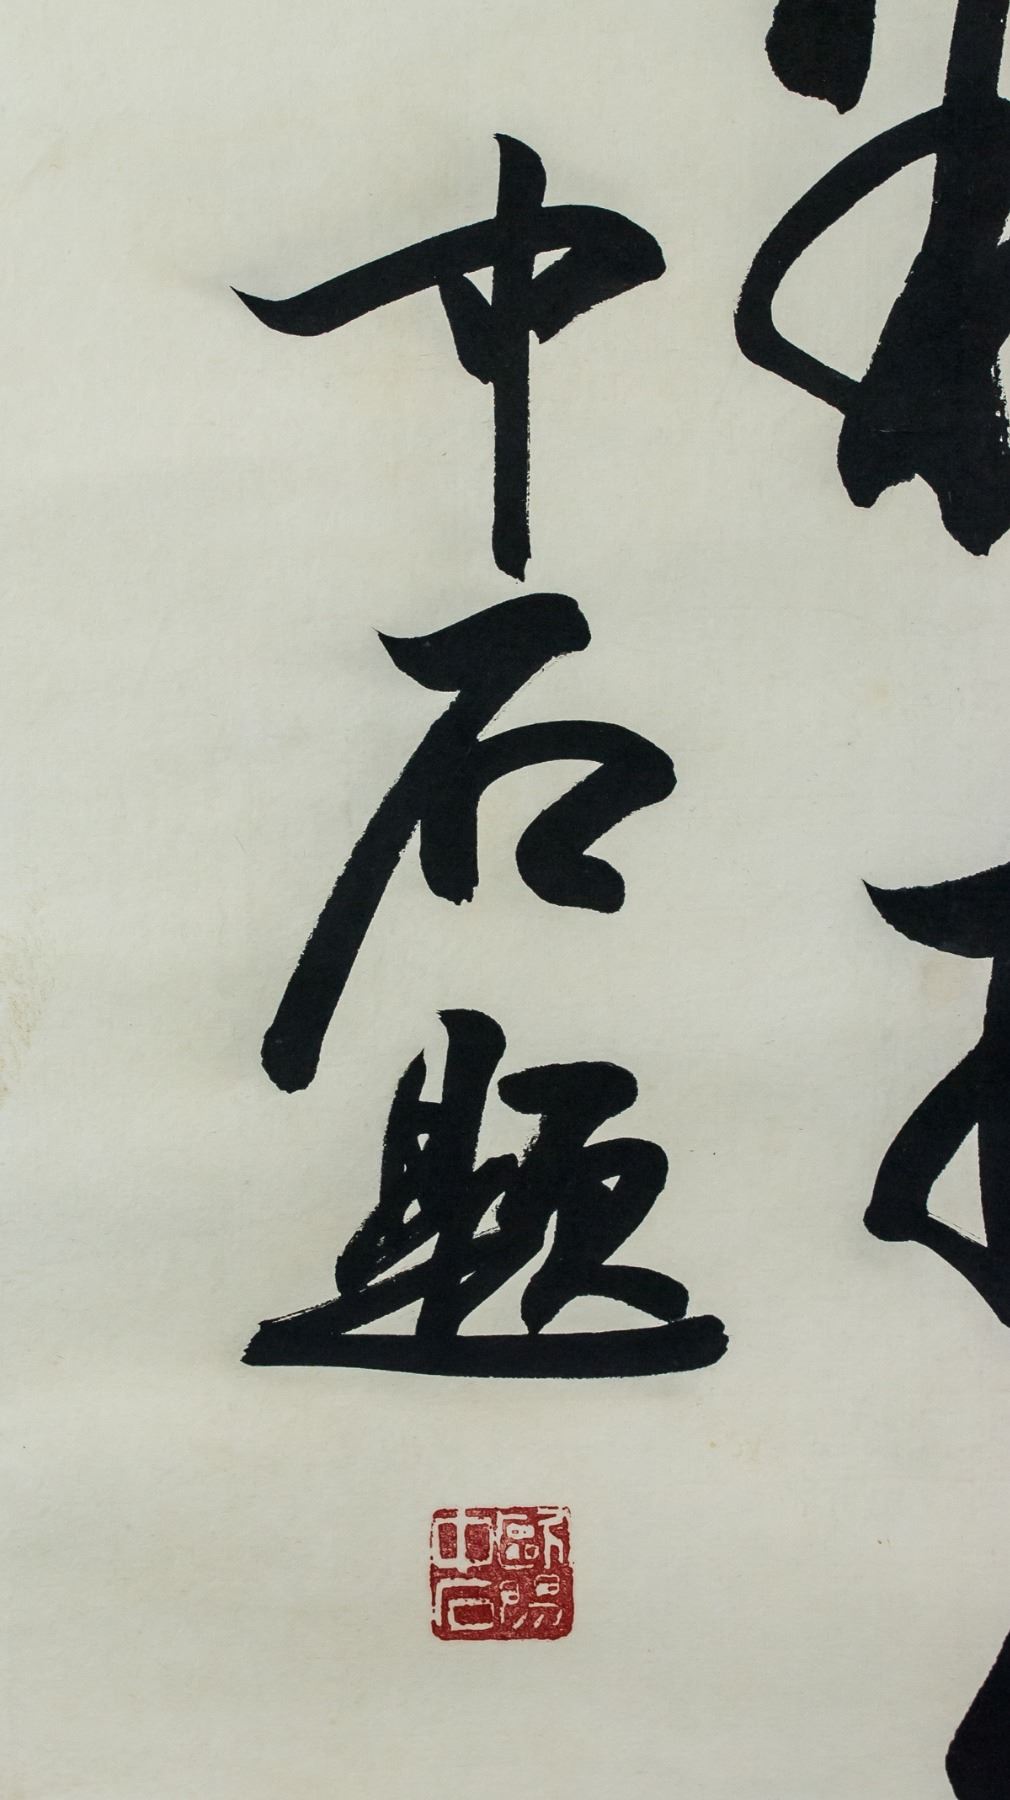 中石题
歐陽
中石